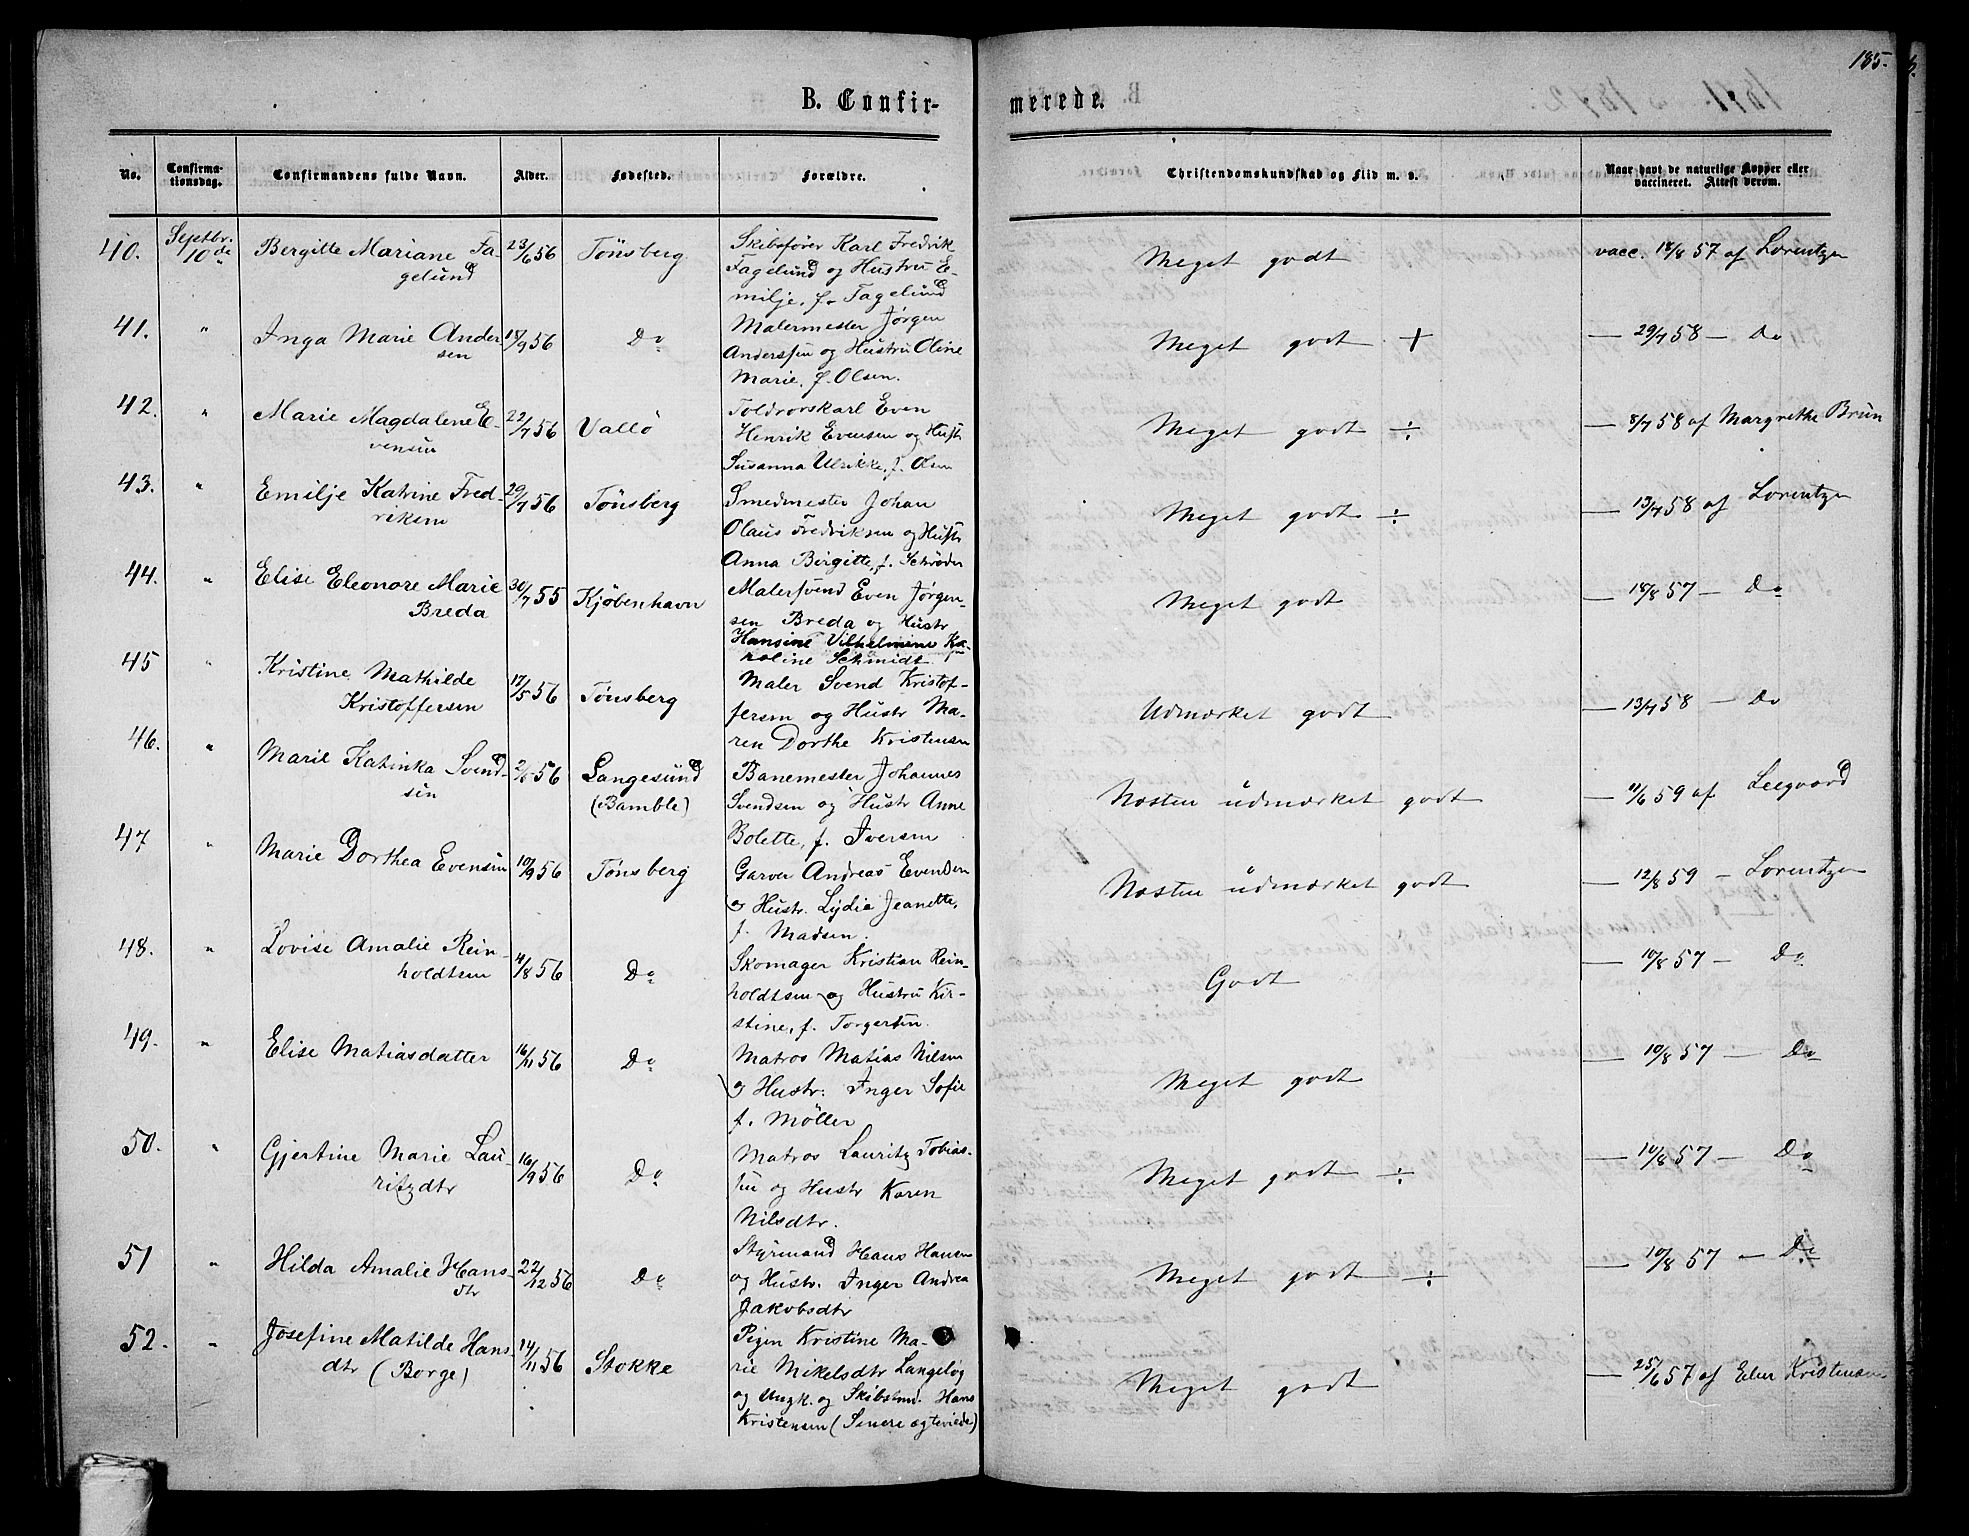 185.
B. Confirmerede.
No. Confirmationsdag. Confirmandens fulde Navn. Alder. Fødested. Forældre. Christendomskundskab og Flid m. v. Naar havt de naturlige Kopper eller vaccineret. Attest derom.
40. Septbr. 10de Bergitte Mariane Fa- 23/6 56 Tönsberg Skibsfører Karl Fredrik
gelund Fagelund og Hustru E- Meget godt vacc. 18/8 57 af Lorentzen
milje, f. Fagelund
41. " Inga Marie Ander 18/9 56 Do Malermester Jørgen
sen Anderssen og Hustru Oline Meget godt + — 29/7 58 — Do
Marie, f. Olsen.
42. " Marie Magdalene E- 22/7 56 Vallö Toldrorskarl Even
vensen Henrik Evensen og Hustr Meget godt ÷ — 8/7 58 af Margrethe Brun
Susanna Ulrikke, f. Olsen
43. " Emilje Katrine Fred- 29/7 56 Tönsberg Smedmester Johan
riksen Olaus Fredriksen og Hustr Meget godt ÷ — 13/7 58 af Lorentzen
Anna Birgitte, f. Schrøder
44. " Elise Eleonore Marie 30/7 55 Kjøbenhavn Malersvend Even Jørgen-
Breda sen Breda og Hustr Meget godt — 18/8 57 — Do
Hansine Vilhelmine Ka-
roline Schmidt
45 " Kristine Mathilde 17/5 56 Tönsberg Maler Svend Kristof-
Kristoffersen fersen og Hustr Ma- Udmærket godt — 13/7 58 — Do
ren Dorthe Kristensen
46. " Marie Katinka Svend- 56 Langesund Banemester Johannes
sen (Bamble) Svendsen og Hustr Anne Næsten udmærket godt — 11/6 59 af Leegaard
Bolette, f. Iversen
47 " Marie Dorthea Evensen 10/9 56 Tönsberg Garver Andreas Evensen
og Hustr. Lydie Jeanette, Næsten udmærket godt — 12/8 59 — Lorentzen
f. Madsen.
48. " Lovise Amalie Rein- 4/8 56 Do Skomager Kristian Rein-
holdtsen holdtsen og Hustru Kir- Godt — 10/8 57 — Do
stine, f. Torgersen.
49. " Elise Matiasdatter 16/11 56 Do Matros Matias Nilsen
og Hustr: Inger Sofie Meget godt — 10/8 57 — Do
f. Möller
50. " Gjertine Marie Lau- 16/9 56 Do Matros Lauritz Tobias-
ritzdtr sen og Hustr Karen Meget godt ÷ — 10/8 57 — Do
Nilsdtr.
51 " Hilda Amalie Hans- 22/12 56 Do Styrmand Hans Hansen
dtr og Hustr. Inger Andrea Meget godt ÷ — 10/8 57 — Do
Jakobsdtr
52. " Josefine Matilde Hans- 14/11 56 Stokke Pigen Kristine Ma-
dtr (Borge) rie Mikelsdtr Langelög Meget godt — 25/6 57 af Kristensen
og Ungk. og Skibstmd. Hans
Kristensen (Senere ægteviede)